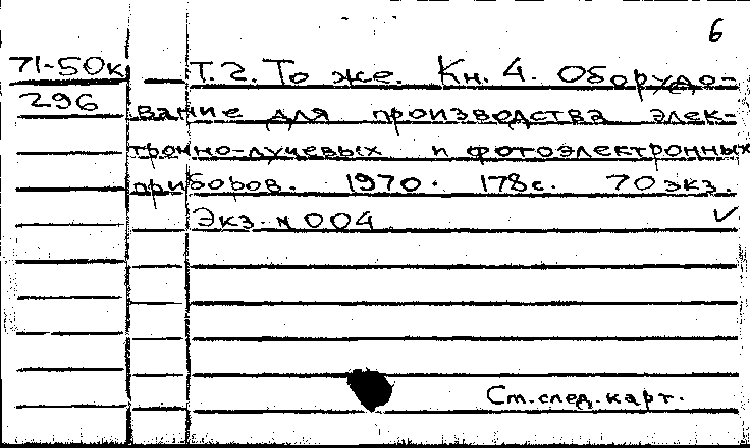 6
71-50к — Т.2. То же. Кн. 4. Оборудо-
296 вание для производства элек-
тронно-лучевых и фотоэлектронных
приборов. 1970. 178с. 70экз.
Экз. N 004 ✓
См.след.карт.